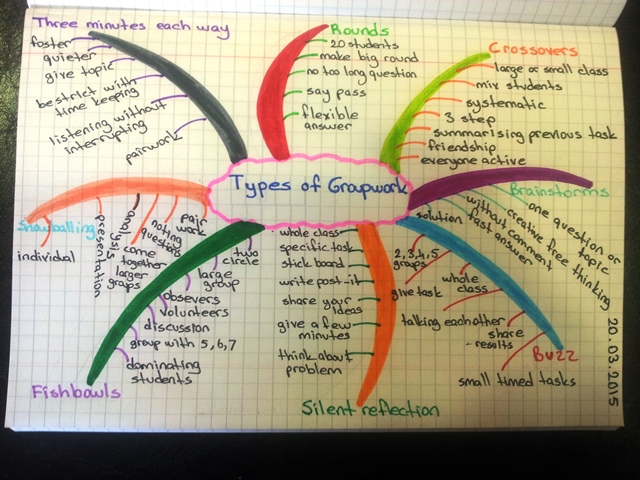 Three minutes each way
foster
quieter
give topic
be strict with
time keeping
listening without
interrupting
pairwork
Rounds
20 students
make big round
no too long question
say pass
flexible
answer
Crossovers
large or small class
mix students
systematic
3 step
summarising previous task
friendship
everyone active
Types of Groupwork
Brainstorms
one question or
topic
creative free thinking
without comment
fast answer
solution
Snowballing
individual
presentation
analysis
come
together
larger
groups
noting
questions
pair
work
Fishbowls
two
circle
large
group
obsevers
volunteers
discussion
group with 5,6,7
dominating
students
Silent reflection
whole class
specific task
stick board
write post-it
share your
ideas
give a few
minutes
think about
problem
Buzz
2,3,4,5
groups
give task
whole
class
talking eachother
share
results
small timed tasks
20.03.2015